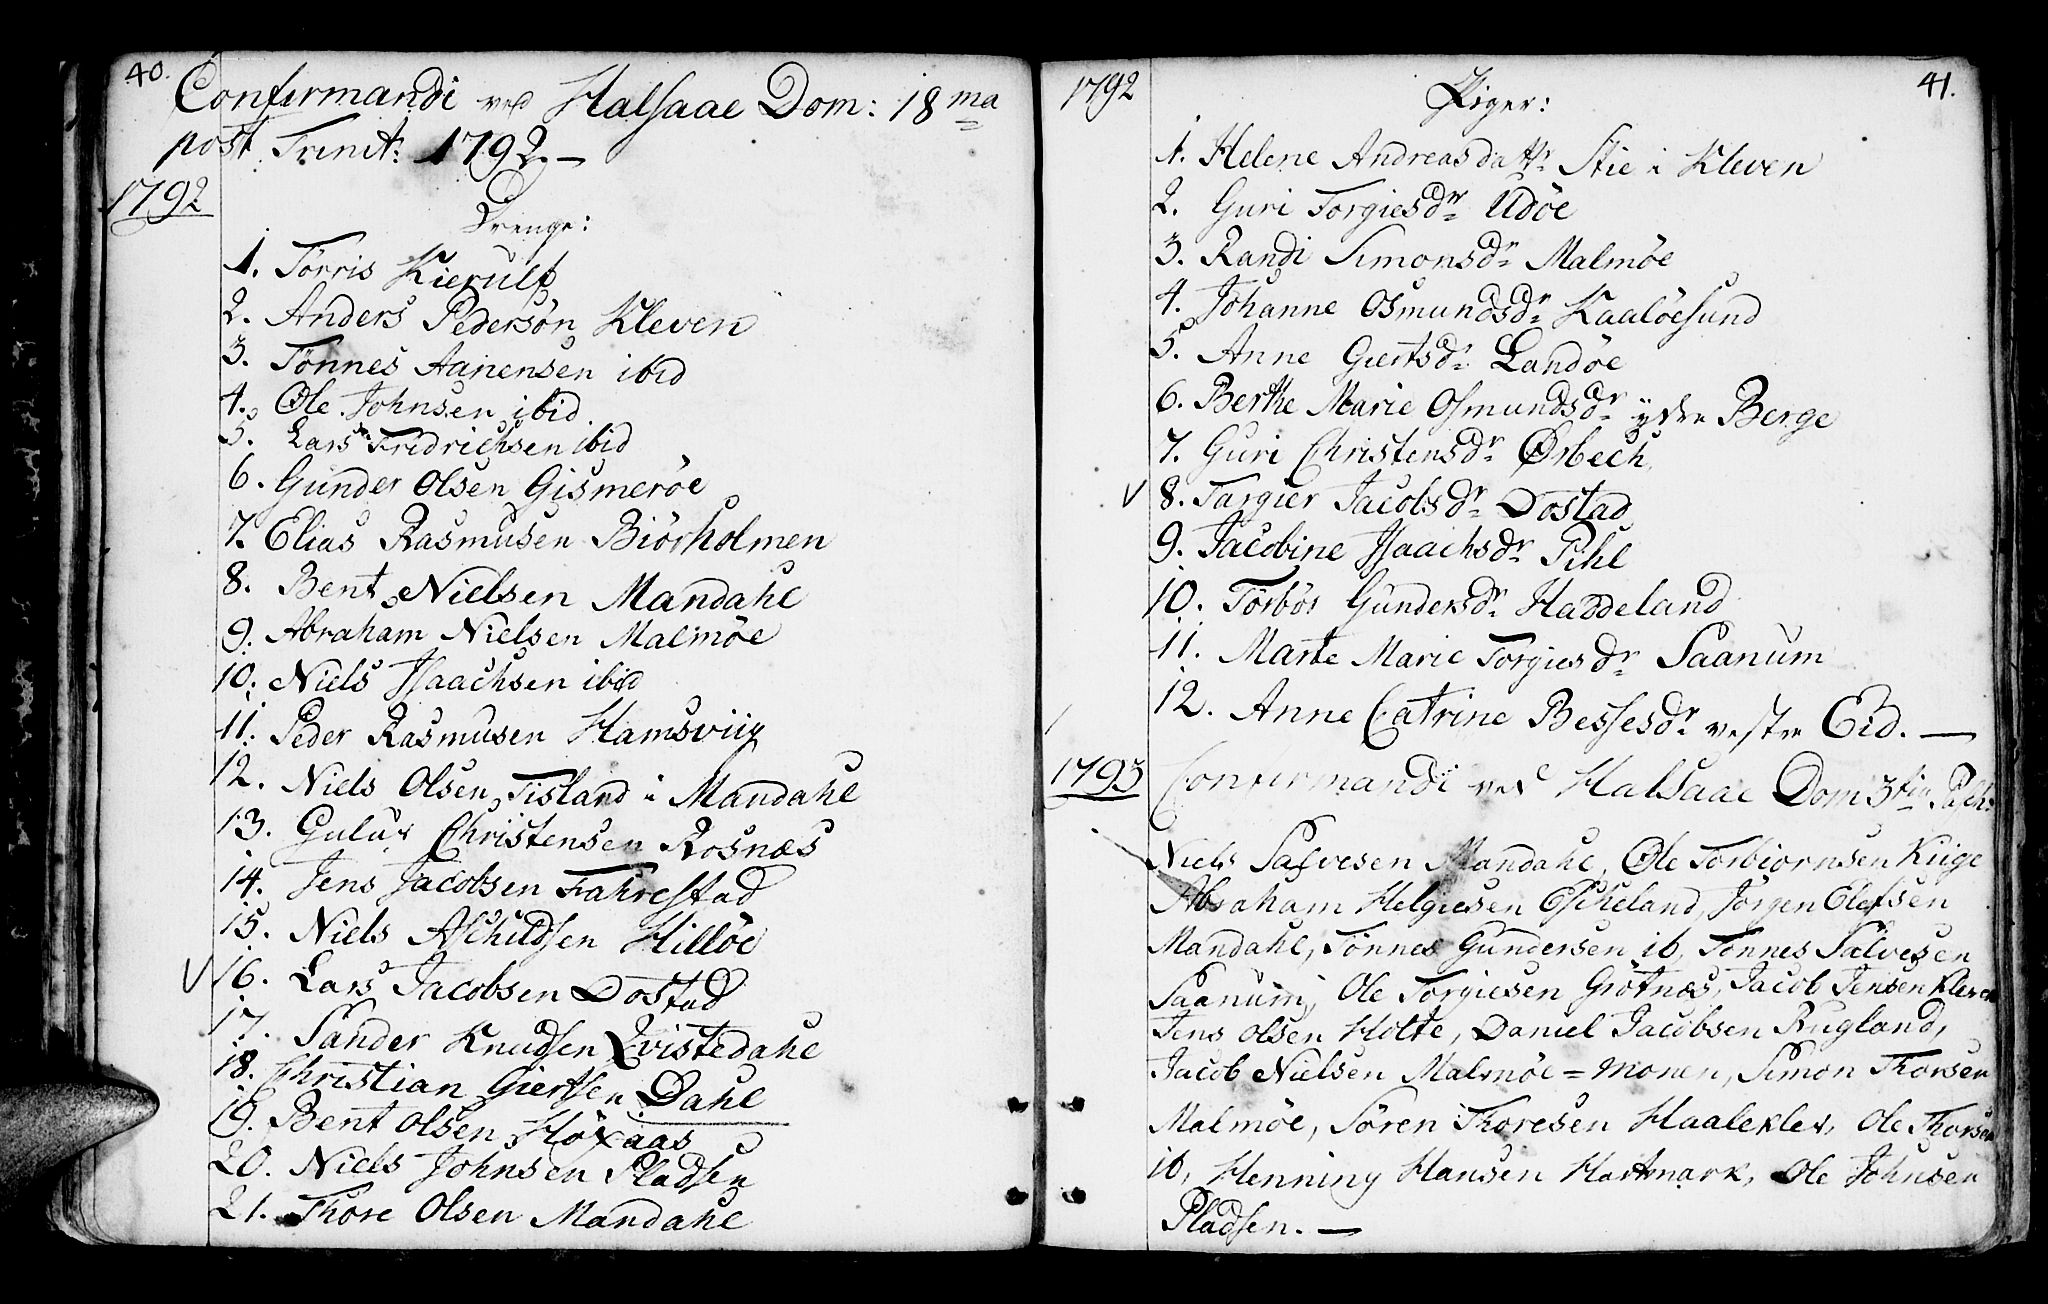 40.
Confirmandi ved Halsaae Dom: 18 ma
post Trinit: 1792. —
1792
Drenge:
1. Törris Kierulf
2. Anders Pedersön Kleven
3. Tönnes Aanensen ibid
4. Ole Johnsen ibid
5. Lars Fridrichsen ibid
6. Gunder Olsen Gismeröe
7. Elias Rasmusen Biörholmen
8. Bent Nielsen Mandahl
9. Abraham Nielsen Malmöe
10. Niels Isaachsen ibid
11. Peder Rasmusen Hamsviig
12. Niels Olsen Tisland i Mandahl
13. Guluf Christensen Rosnæs
14. Jens Jacobsen Fahrestad
15. Niels Aschildsen Hillöe
V 16. Lars Jacobsen Dostad
17. Sander Knudsen Qvistedahl
18. Christian Giertsen Dahl
19. Bent Olsen
20. Niels Johnsen Pladsen
21. Thore Olsen Mandahl
41.
1792
Piger:
1. Helene Andreasdattr Stie i Kleven
2. Guri Torgiesdr Udöe
3. Randi Simonsdr Malmöe
4. Johanne Osmundsdr Kaalöesund
5. Anne Giertsdr Landöe
6. Berthe Marie Osmundsdr ydre Berge
7. Guri Christensdr Ørbech
V 8. Targier Jacobsdr Dostad
9. Jacobine Isaachsdr Pihl
10. Torbör Gundersdr Haddeland
11. Marte Marie Torgiesdr Saanum
12. Anne Catrine Bessesdr vestre Eid. —
1793 Confirmandi ved Halsaae Dom 3tia Pasch:
Niels Salvesen Mandahl, Ole Torbiornsen Kiige
Abraham Helgiesen Escheland, Jörgen Olefsen
Mandahl, Tönnes Gundersen ib, Tönnes Salvesen
Saanum, Ole Torgiesen Grötnæs, Jacob Jensen Kleven
Jens Olsen Holte, Daniel Jacobsen Rugland,
Jacob Nielsen Malmöe = Monen, Simon Thorsen
Malmöe, Sören Thoresen Haaleklev, Ole Thorsen
ib, Henning Hansen Hartmark, Ole Johnsen
Pladsen. —